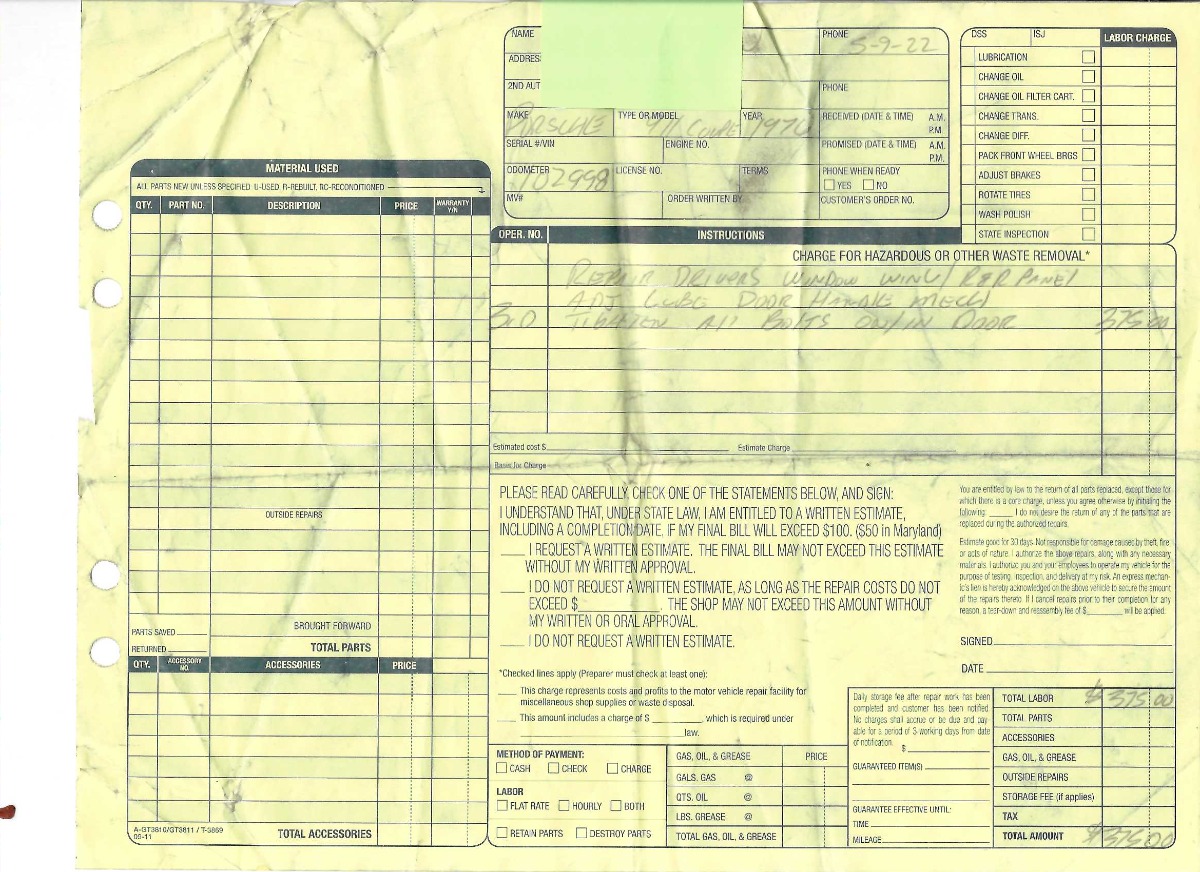 NAME
PHONE 5-9-22
ADDRES
2ND AUT
PHONE
MAKE PORSCHE
TYPE OR MODEL 911 COUPE
YEAR 1970
RECEIVED (DATE & TIME) A.M.
P.M.
SERIAL #/VIN
ENGINE NO.
PROMISED (DATE & TIME) A.M.
P.M.
ODOMETER 102998
LICENSE NO.
TERMS
PHONE WHEN READY
YES NO
MV#
ORDER WRITTEN BY
CUSTOMER'S ORDER NO.
DSS ISJ LABOR CHARGE
LUBRICATION
CHANGE OIL
CHANGE OIL FILTER CART.
CHANGE TRANS.
CHANGE DIFF.
PACK FRONT WHEEL BRGS
ADJUST BRAKES
ROTATE TIRES
WASH POLISH
STATE INSPECTION
MATERIAL USED
ALL PARTS NEW UNLESS SPECIFIED: U-USED, R-REBUILT, RC-RECONDITIONED
QTY. PART NO. DESCRIPTION PRICE WARRANTY Y/N
OUTSIDE REPAIRS
PARTS SAVED
BROUGHT FORWARD
RETURNED
TOTAL PARTS
QTY. ACCESSORY NO. ACCESSORIES PRICE
A-GT3810/GT3811 / T-3869
05-11
TOTAL ACCESSORIES
OPER. NO. INSTRUCTIONS
CHARGE FOR HAZARDOUS OR OTHER WASTE REMOVAL*
REPAIR DRIVERS WINDOW PANEL
ADJ LUBE DOOR HANDLE MECH
3.0 TIGHTEN All BOLTS ON/IN DOOR 375 00
Estimated cost $ Estimate Charge
Basis for Charge
PLEASE READ CAREFULLY, CHECK ONE OF THE STATEMENTS BELOW, AND SIGN:
I UNDERSTAND THAT, UNDER STATE LAW, I AM ENTITLED TO A WRITTEN ESTIMATE,
INCLUDING A COMPLETION DATE, IF MY FINAL BILL WILL EXCEED $100. ($50 in Maryland)
I REQUEST A WRITTEN ESTIMATE. THE FINAL BILL MAY NOT EXCEED THIS ESTIMATE
WITHOUT MY WRITTEN APPROVAL.
I DO NOT REQUEST A WRITTEN ESTIMATE, AS LONG AS THE REPAIR COSTS DO NOT
EXCEED $ . THE SHOP MAY NOT EXCEED THIS AMOUNT WITHOUT
MY WRITTEN OR ORAL APPROVAL.
I DO NOT REQUEST A WRITTEN ESTIMATE.
*Checked lines apply (Preparer must check at least one):
This charge represents costs and profits to the motor vehicle repair facility for
miscellaneous shop supplies or waste disposal.
This amount includes a charge of $ , which is required under
law.
You are entitled by law to the return of all parts replaced, except those for
which there is a core charge, unless you agree otherwise by initialing the
following: I do not desire the return of any of the parts that are
replaced during the authorized repairs.
Estimate good for 30 days. Not responsible for damage caused by theft, fire,
or acts of nature. I authorize the above repairs, along with any necessary
materials. I authorize you and your employees to operate my vehicle for the
purpose of testing, inspection, and delivery at my risk. An express mechan-
ic's lien is hereby acknowledged on the above vehicle to secure the amount
of the repairs thereto. If I cancel repairs prior to their completion for any
reason, a tear-down and reassembly fee of $ will be applied.
SIGNED
DATE
METHOD OF PAYMENT:
CASH CHECK CHARGE
LABOR
FLAT RATE HOURLY BOTH
RETAIN PARTS DESTROY PARTS
GAS, OIL, & GREASE PRICE
GALS. GAS @
QTS. OIL @
LBS. GREASE @
TOTAL GAS, OIL, & GREASE
Daily storage fee after repair work has been
completed and customer has been notified.
No charges shall accrue or be due and pay-
able for a period of 3 working days from date
of notification. $
GUARANTEED ITEM(S)
GUARANTEE EFFECTIVE UNTIL:
TIME
MILEAGE
TOTAL LABOR $375 00
TOTAL PARTS
ACCESSORIES
GAS, OIL, & GREASE
OUTSIDE REPAIRS
STORAGE FEE (if applies)
TAX
TOTAL AMOUNT $375 00